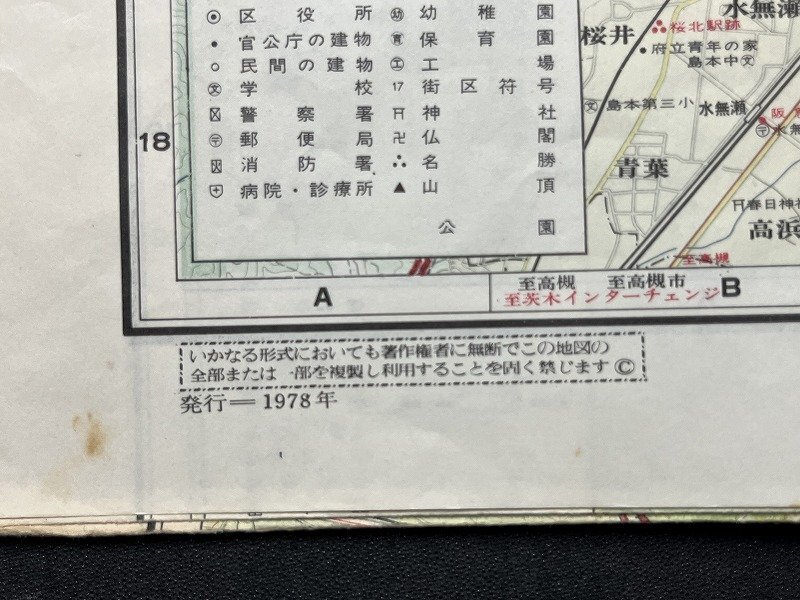 区役所 幼 幼稚園
官公庁の建物 育 保育園
民間の建物 工 工場
文 学校 17 街区符号
警察署 神社
〒 郵便局 卍 仏閣
消防署 名勝
病院・診療所 ▲ 山頂
公園
水無瀬
桜北駅跡
桜井
府立青年の家
島本中 文
文 島本第三小
水無瀬
青葉
春日神
高浜
至高槻
18
至高槻 至高槻市
至茨木インターチェンジ
A
B
いかなる形式においても著作権者に無断でこの地図の
全部または一部を複製し利用することを固く禁じます ©
発行＝1978年